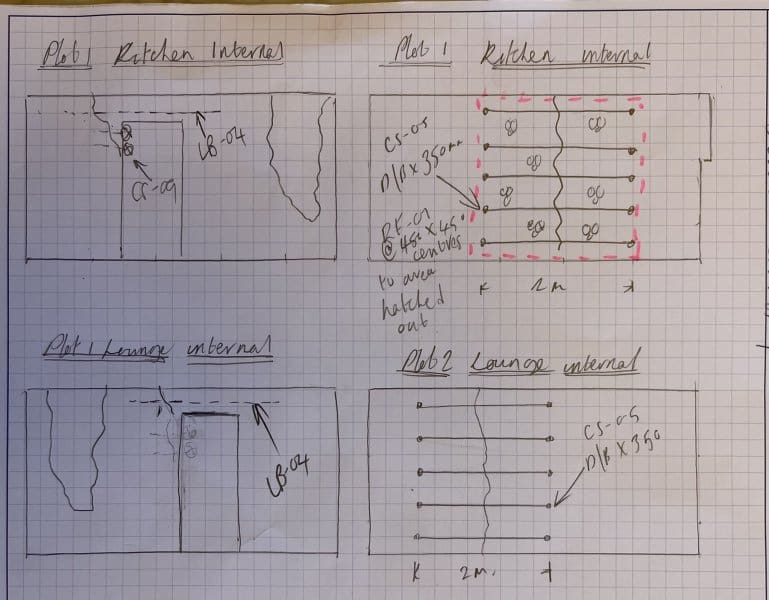 Plot 1 Kitchen Internal
LB-04
CS-09
Plot 1 Kitchen internal
CS-05
D/B x 350mm
RF-01
@ 450 x 450
centres
to area
hatched
out
2M
Plot 1 Lounge internal
LB-04
Plot 2 Lounge internal
CS-05
D/B x 350
2M.